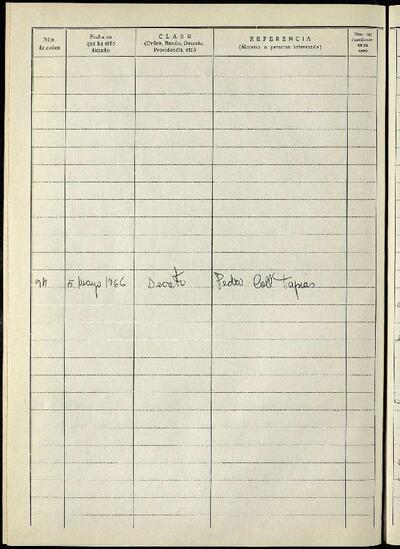 Núm. de orden
Fecha en que ha sido dictado
CLASE
(Orden, Bando, Decreto, Providencia, etc.)
REFERENCIA
(Materia o persona interesada)
Núm. del expediente en su caso
5 Mayo 1966 Decreto Pedro Coll Tapias